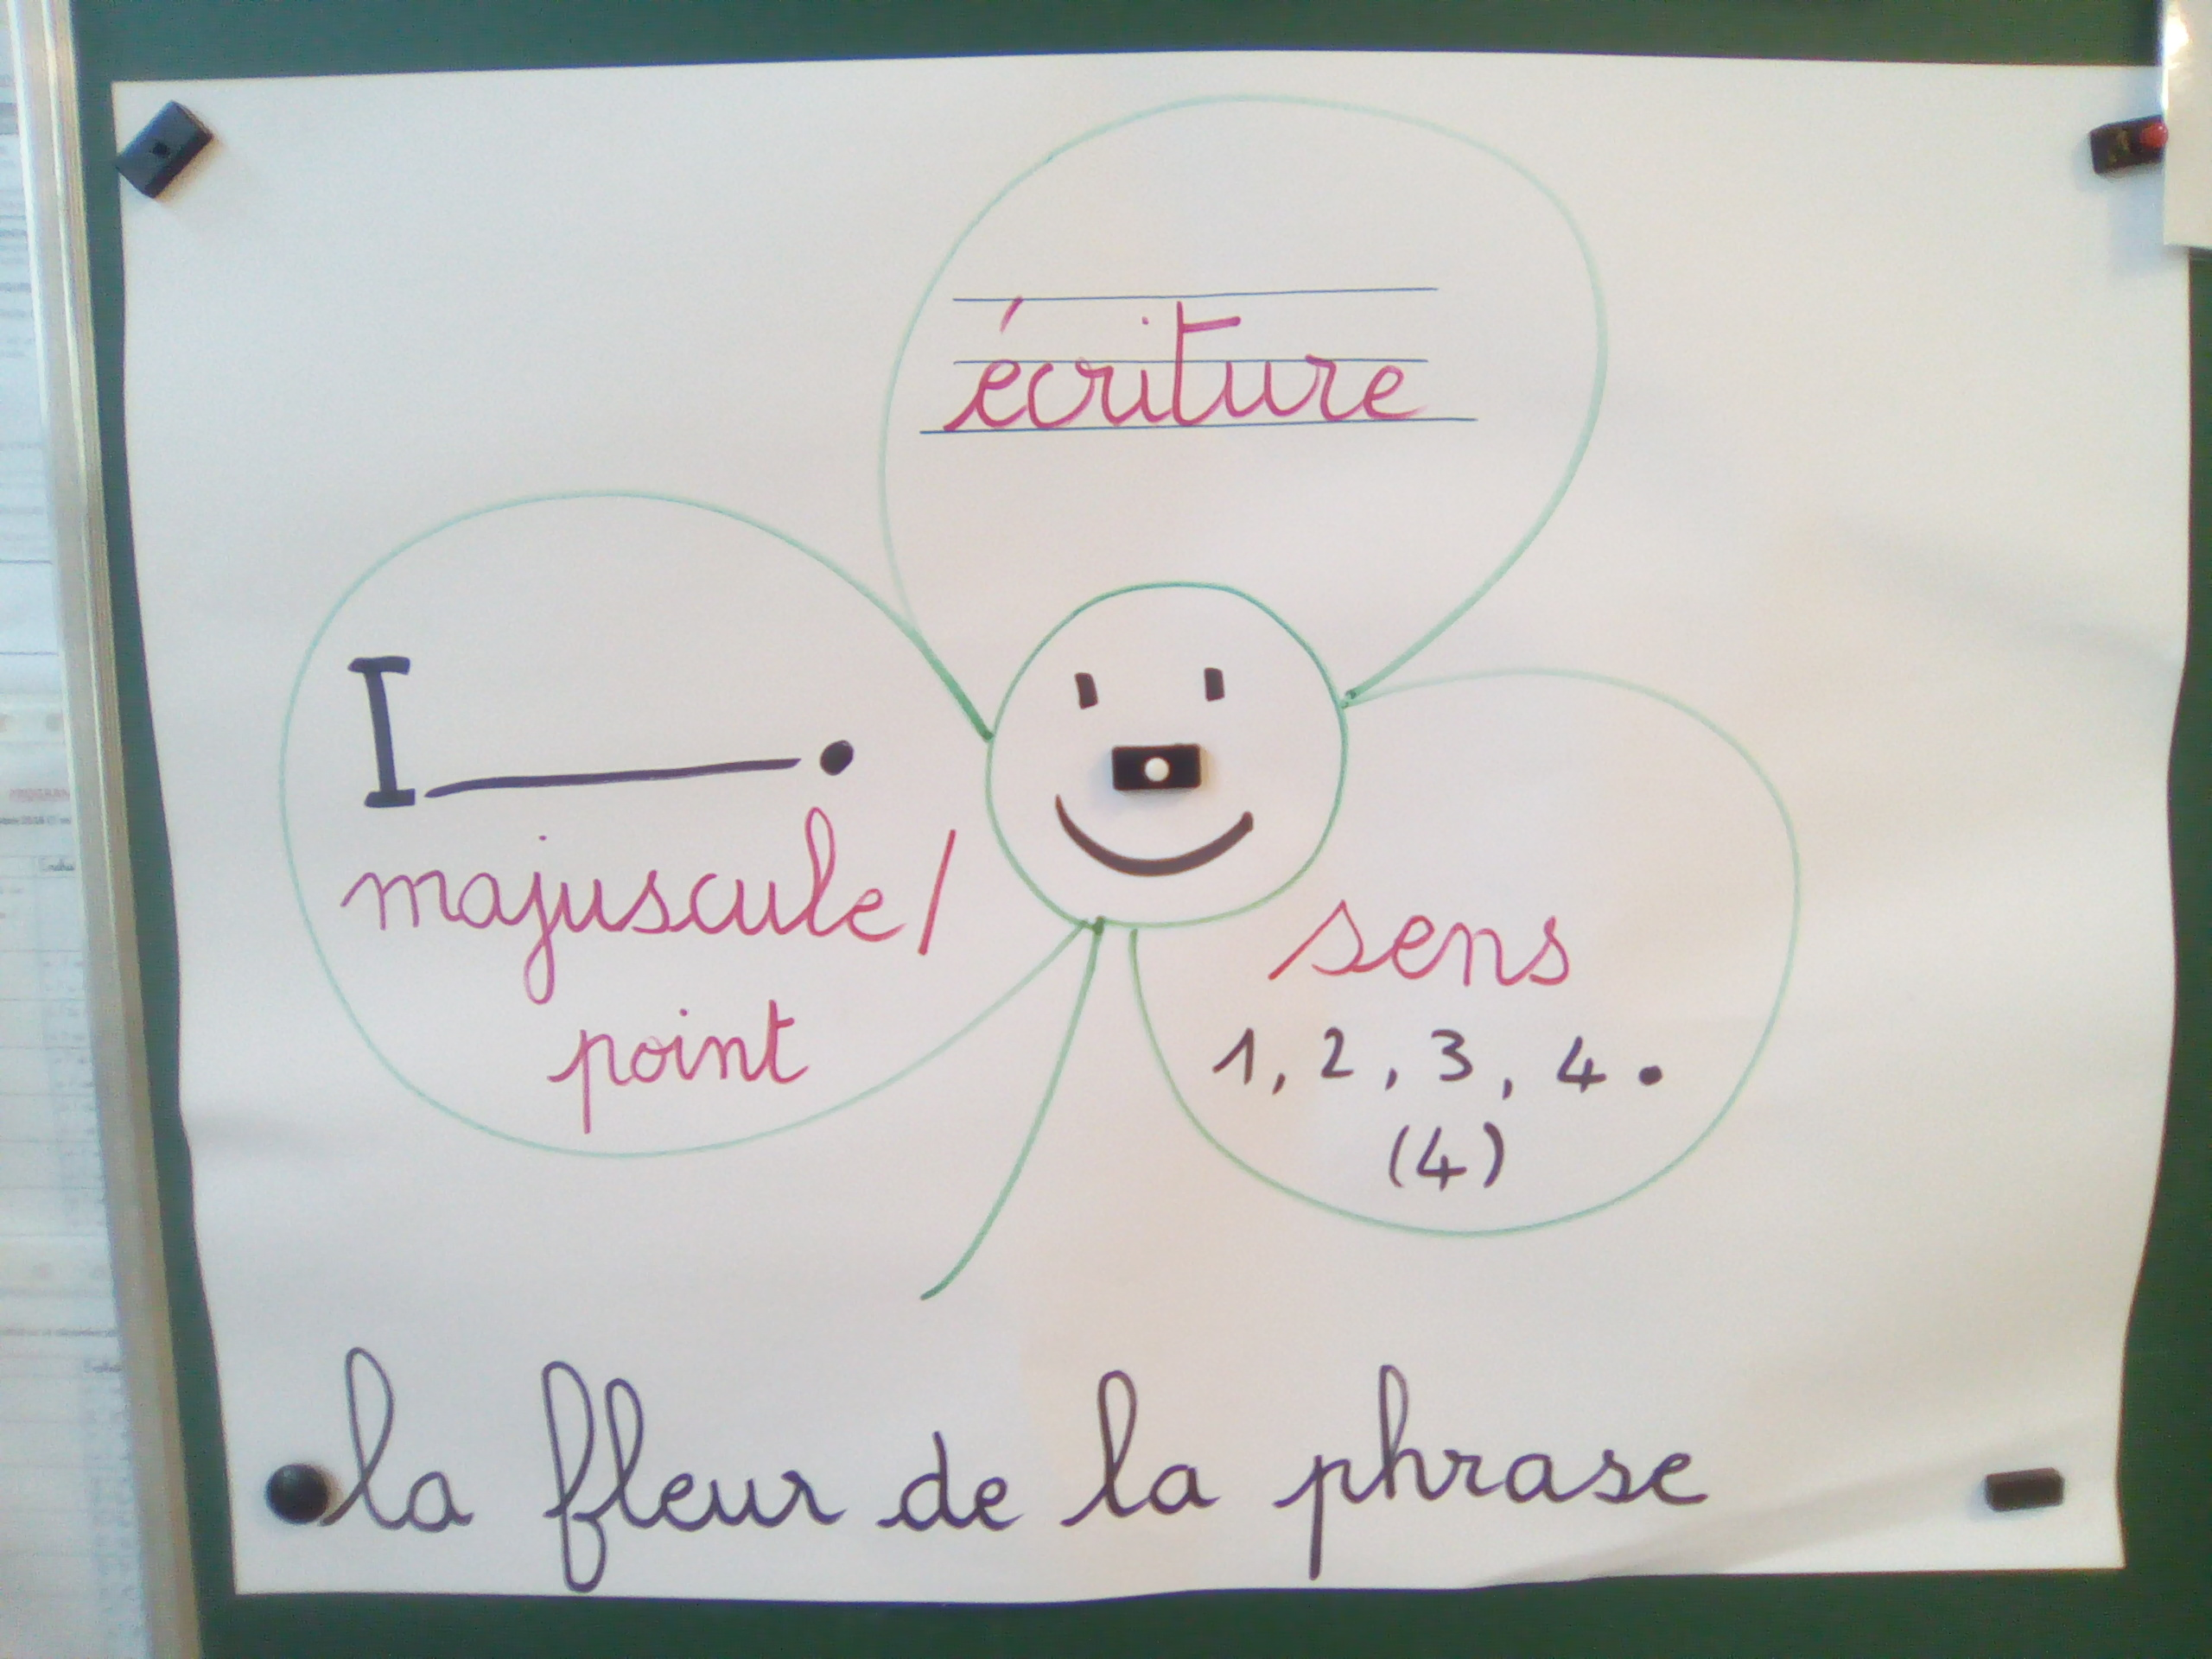 écriture
I_______.
majuscule/
point
sens
1, 2, 3, 4.
(4)
la fleur de la phrase